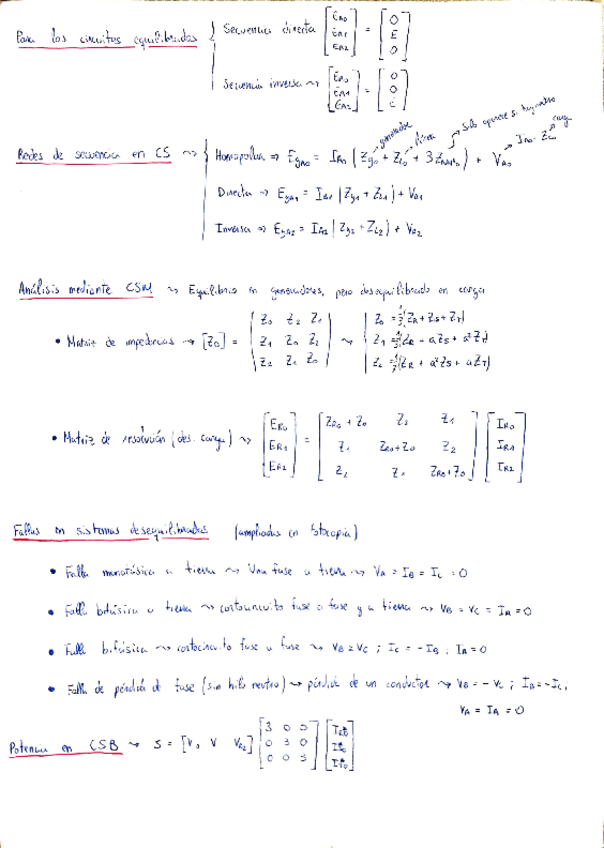 Para los circuitos equilibrados { Secuencia directa [E_R0 E_R1 E_R2] = [0 E 0]
Secuencia inversa ⇝ [E_R0 E_R1 E_R2] = [0 0 E]
generador línea Sólo aparece si hay neutro I_R0 · Z_c carga
Redes de secuencia en CS ⇝ { Homopolar ⇒ E_gR0 = I_R0 (Z_g0 + Z_L0 + 3Z_) + V_R0
Directa ⇒ E_gR1 = I_R1 (Z_g1 + Z_L1) + V_R1
Inversa ⇒ E_gR2 = I_R2 (Z_g2 + Z_L2) + V_R2
Análisis mediante CSM ⇝ Equilibrio en generadores, pero desequilibrado en carga
• Matriz de impedancias → [Z_0] = (Z_0 Z_2 Z_1
Z_1 Z_0 Z_2
Z_2 Z_1 Z_0) ⇝ | Z_0 = 1/3 (Z_R + Z_S + Z_T)
Z_1 = 1/3 (Z_R - aZ_S + a²Z_T)
Z_2 = 1/3 (Z_R + a²Z_S + aZ_T)
• Matriz de resolución (des. carga) ⇝ [E_R0 E_R1 E_R2] = [Z_R0 + Z_0 Z_2 Z_1
Z_1 Z_R0 + Z_0 Z_2
Z_2 Z_1 Z_R0 + Z_0] [I_R0 I_R1 I_R2]
Fallas en sistemas desequilibrados (ampliadas en fotocopia)
• Falla monofásica a tierra ⇝ Una fase a tierra ⇝ V_A = I_B = I_C = 0
• Falla bifásica a tierra ⇝ cortocircuito fase a fase y a tierra ⇝ V_B = V_C = I_A = 0
• Falla bifásica ⇝ cortocircuito fase a fase ⇝ V_B = V_C ; I_C = - I_B ; I_A = 0
• Falla de pérdida de fase (sin hilo neutro) ⇝ pérdida de un conductor ⇝ V_B = - V_C ; I_B = - I_C,
V_A = I_A = 0
Potencia en CSB ⇝ S = [V_0 V V_R2] [3 0 0
0 3 0
0 0 3]